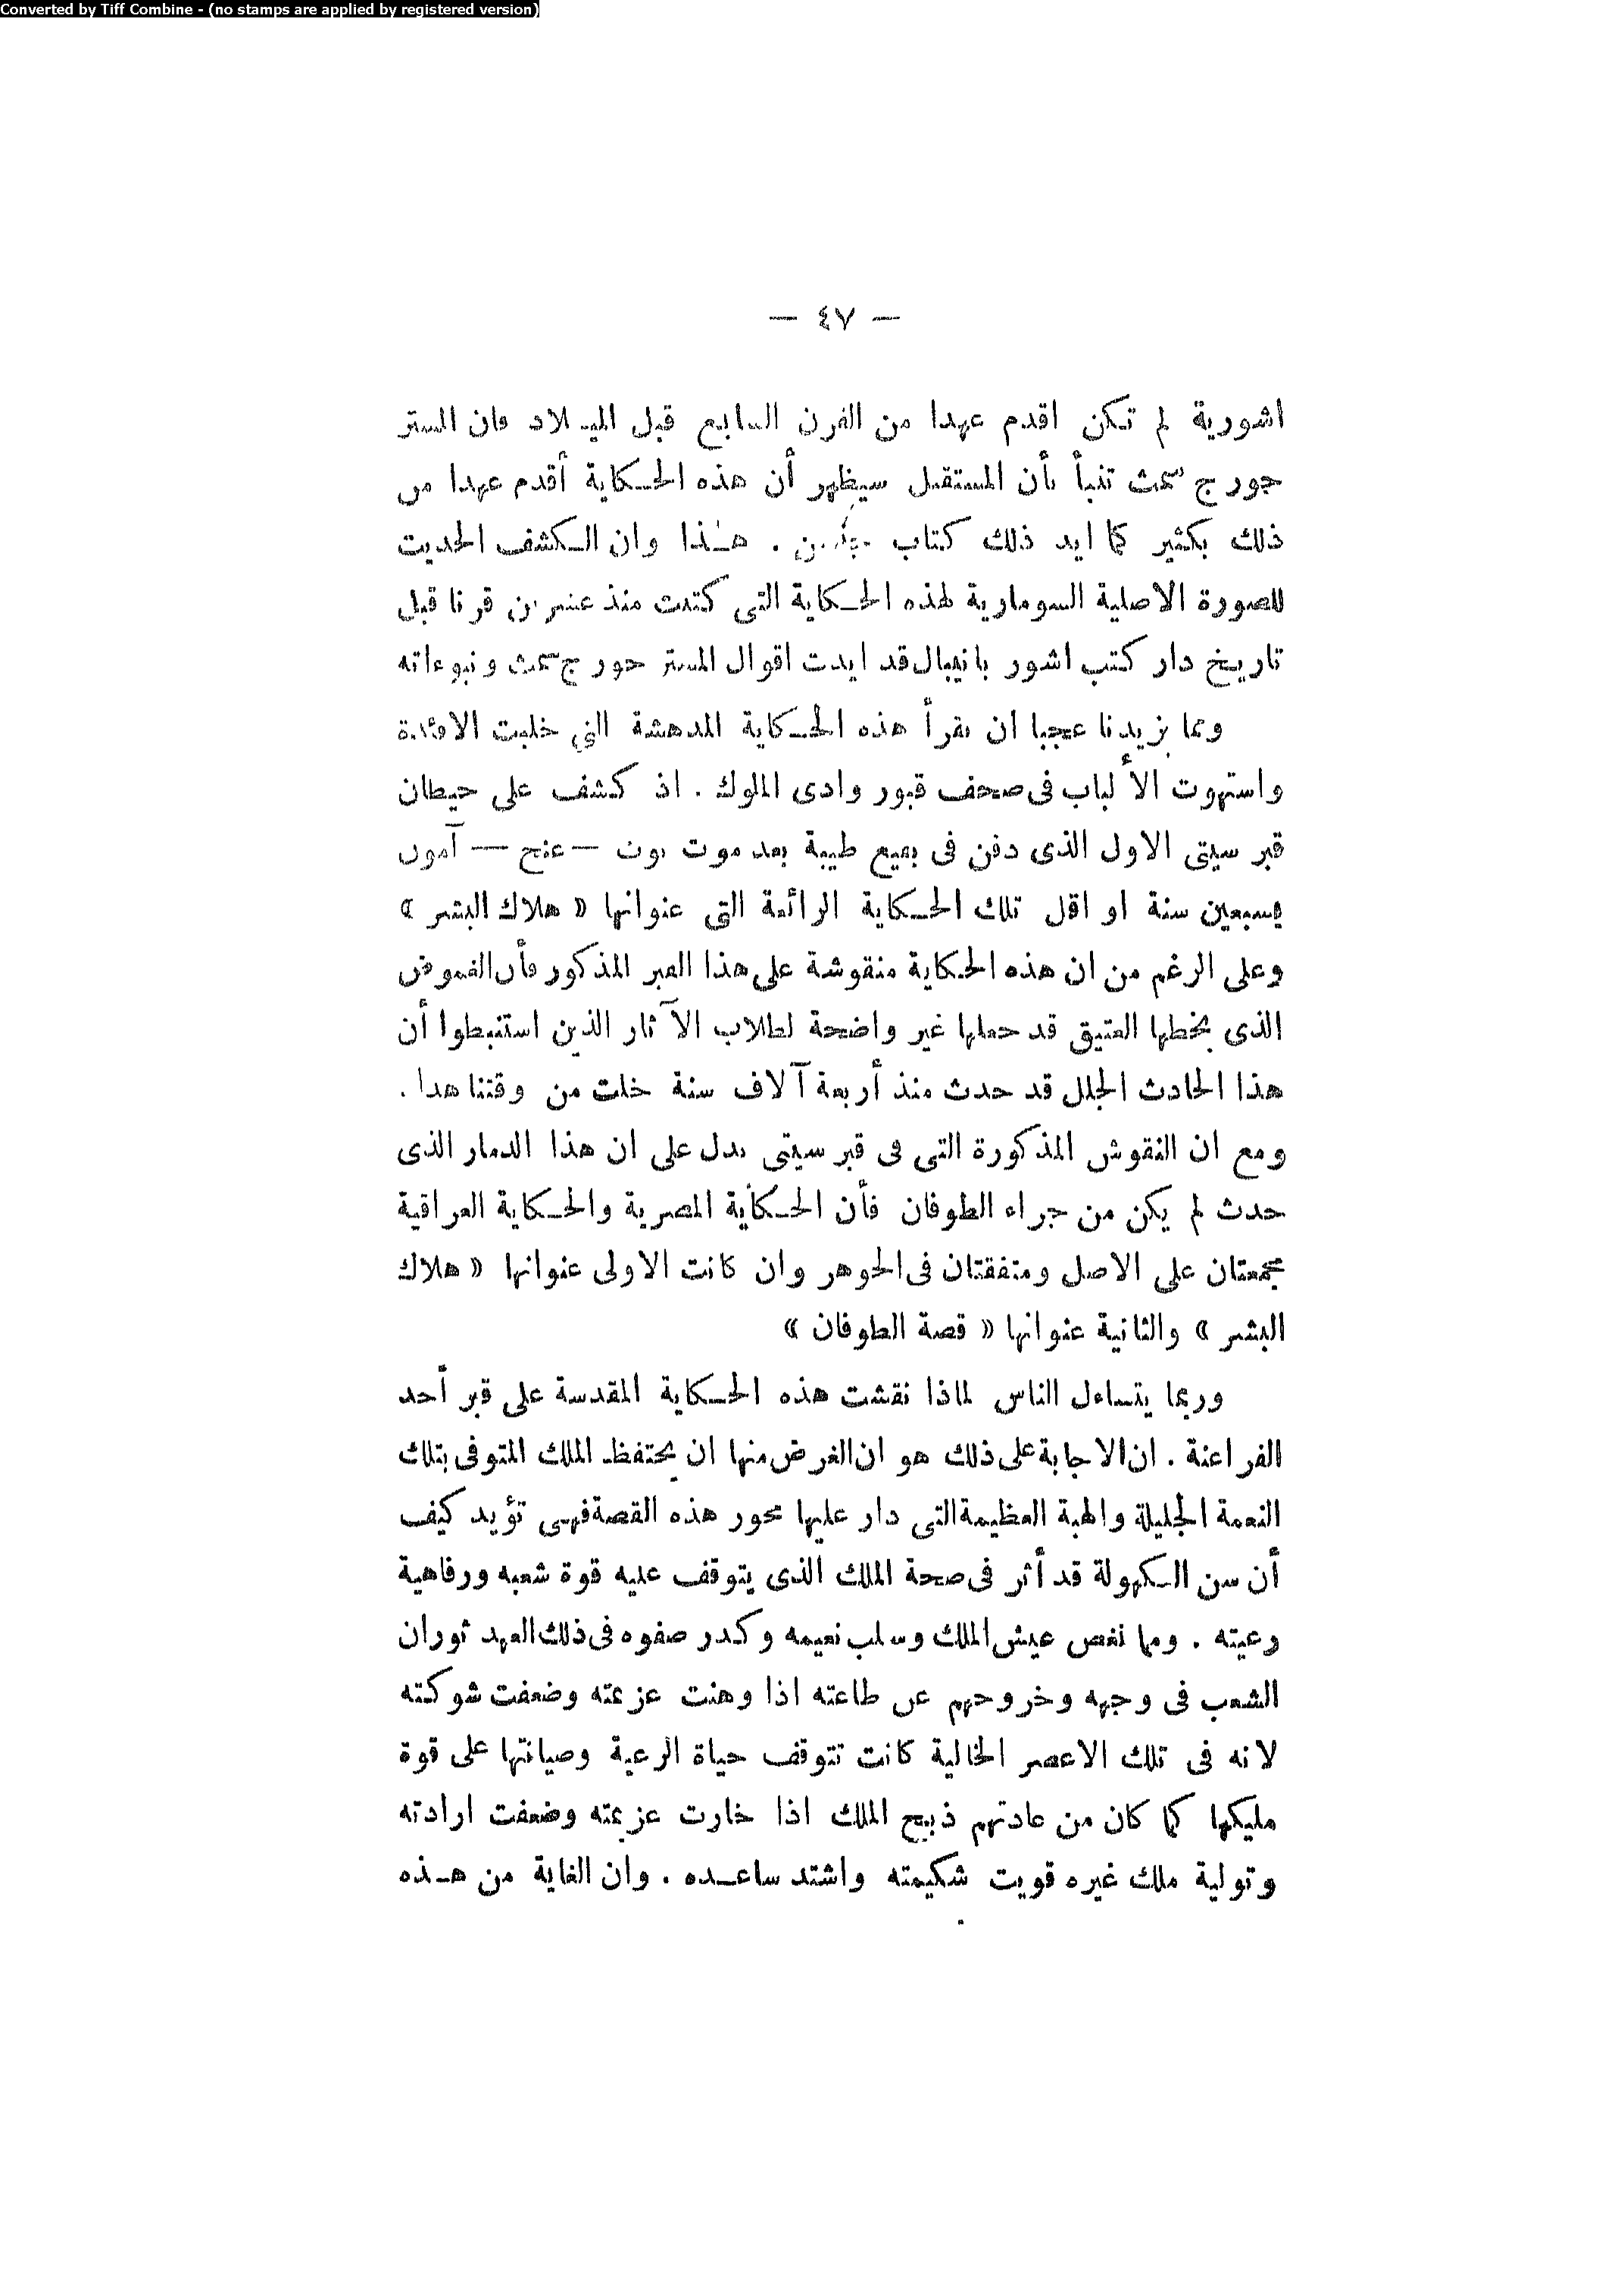 Converted by Tiff Combine - (no stamps are applied by registered version)
— ٤٧ —
اشورية لم تكن اقدم عهدا من القرن السابع قبل الميلاد فان المستر
جورج سمث تنبأ بأن المستقبل سيظهر أن هذه الحكاية أقدم عهدا من
ذلك بكثير كما ايد ذلك كتاب . هذا وان الكشف الحديث
للصورة الاصلية السومارية لهذه الحكاية التى كتبت منذ عشرين قرنا قبل
تاريخ دار كتب اشور بانيبال قد ايدت اقوال المستر جورج سمث ونبوءاته
ومما يزيدنا عجبا ان نقرأ هذه الحكاية المدهشة التي خلبت الافئدة
واستهوت الألباب فى صحف قبور وادى الملوك . اذ كشف على حيطان
قبر سيتى الاول الذى دفن فى بقيع طيبة بعد موت توت — عنج — آمون
بسبعين سنة او اقل تلك الحكاية الرائعة التى عنوانها « هلاك البشر »
وعلى الرغم من ان هذه الحكاية منقوشة على هذا القبر المذكور فأن الغموض
الذى بخطها العتيق قد جعلها غير واضحة لطلاب الآثار الذين استنبطوا أن
هذا الحادث الجلل قد حدث منذ أربعة آلاف سنة خلت من وقتنا هذا .
ومع ان النقوش المذكورة التى فى قبر سيتى تدل على ان هذا الدمار الذى
حدث لم يكن من جراء الطوفان فأن الحكاية المصرية والحكاية العراقية
مجمعتان على الاصل ومتفقتان فى الجوهر وان كانت الاولى عنوانها « هلاك
البشر » والثانية عنوانها « قصة الطوفان »
وربما يتساءل الناس لماذا نقشت هذه الحكاية المقدسة على قبر أحد
الفراعنة . ان الاجابة على ذلك هو ان الغرض منها ان يحتفظ الملك المتوفى بتلك
النعمة الجليلة والهبة العظيمة التى دار عليها محور هذه القصة فهى تؤيد كيف
أن سن الكهولة قد أثر فى صحة الملك الذى يتوقف عليه قوة شعبه ورفاهية
رعيته . ومما نغص عيش الملك وسلب نعيمه وكدر صفوه فى ذلك العهد ثوران
الشعب فى وجهه وخروجهم عن طاعته اذا وهنت عزيمته وضعفت شوكته
لانه فى تلك الاعصر الخالية كانت تتوقف حياة الرعية وصيانتها على قوة
مليكها كما كان من عادتهم ذبيح الملك اذا خارت عزيمته وضعفت ارادته
وتولية ملك غيره قويت شكيمته واشتد ساعده . وان الغاية من هذه